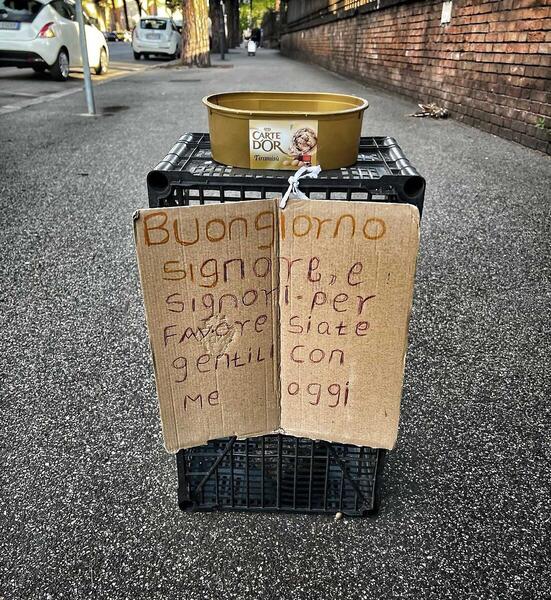 CARTE
D'OR
Tiramisù
Buongiorno
signore, e
signori. per
Favore siate
gentili con
me oggi